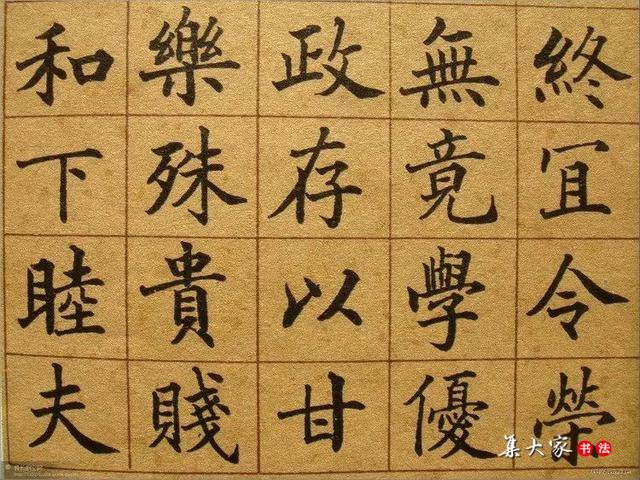 終宜令榮
無竟學優
政存以甘
樂殊貴賤
和下睦夫
集大家书法